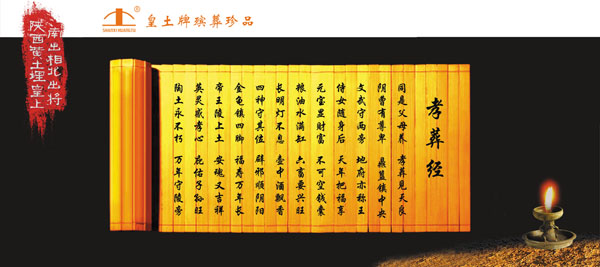 皇土牌殡葬珍品
南出相北出将
陕西黄土埋皇上
孝葬经
同是父母养 孝葬见天良
阴曹有尊卑 鼎簋镇中央
文武守两旁 地府亦称王
侍女随身后 天年把福享
元宝显财富 不可空钱囊
粮油水满缸 六畜要兴旺
长明灯不息 壶中酒飘香
四神守其位 辟邪顺阴阳
金龟镇四脚 福寿万年长
帝王陵上土 安魂又吉祥
英灵感孝心 庇佑子孙旺
陶土永不朽 万年守陵旁